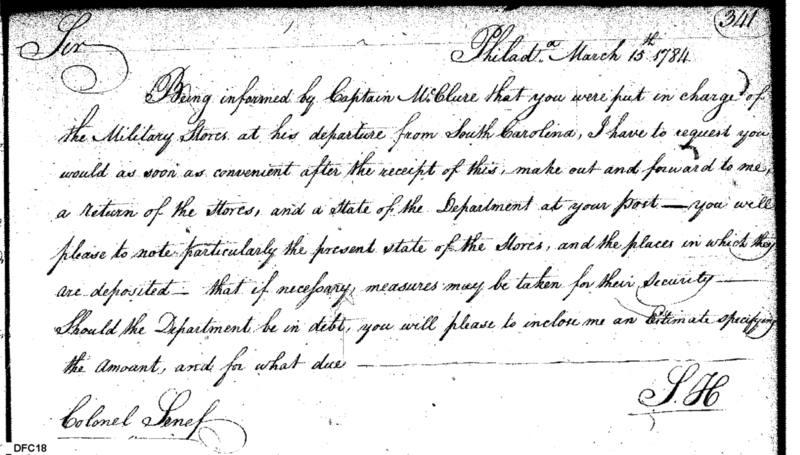 341
Sir
Philad.ª March 15th 1784
Being informed by Captain McClure that you were put in charge of
the Military Stores at his departure from South Carolina, I have to request you
would as soon as convenient after the receipt of this, make out and forward to me,
a return of the Stores, and a State of the Department at your post — you will
please to note particularly the present state of the Stores, and the places in which they
are deposited — that if necessary, measures may be taken for their security —
Should the Department be in debt, you will please to inclose me an Estimate specifying
the Amount, and for what due —
S. H
Colonel Senef
DFC18